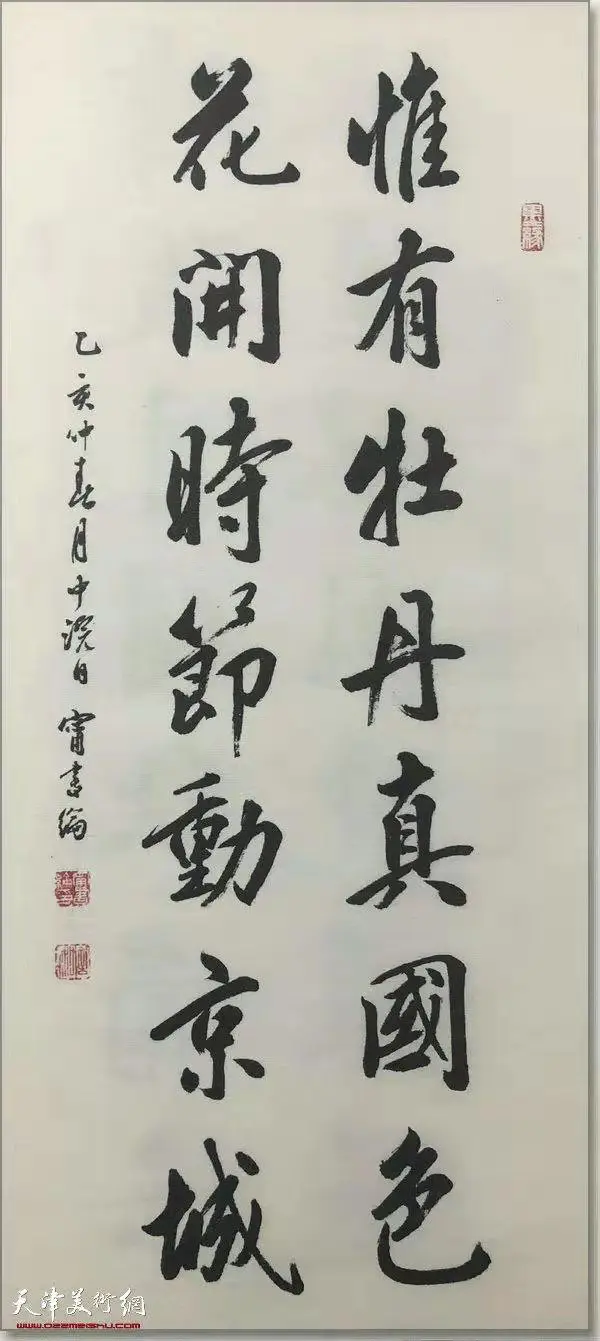 惟有牡丹真國色
花開時節動京城
乙亥仲春月中澣日甯書綸
天津美術網
www.022meishu.com